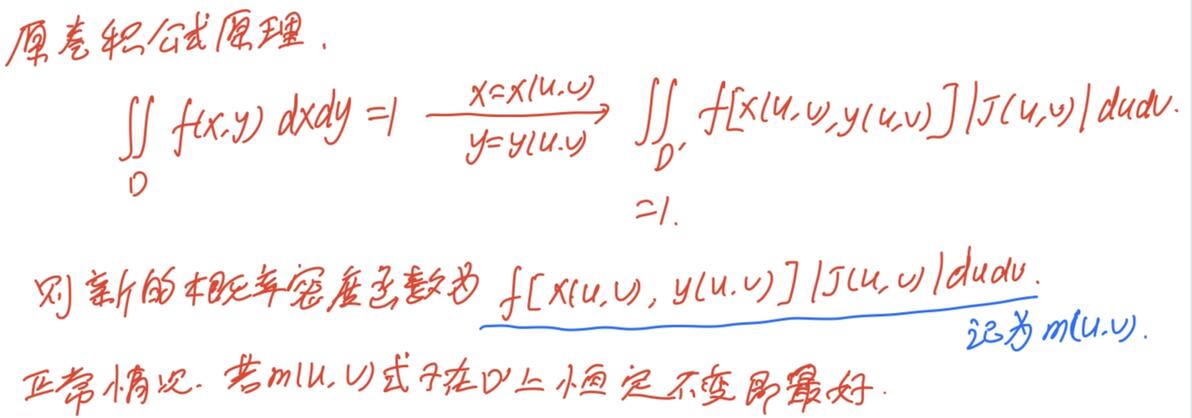 原卷积公式原理.
∬_D f(x,y) dxdy =1 —x=x(u.v) y=y(u.v)→ ∬_D' f[x(u,v),y(u,v)]|J(u,v)|dudv.
=1.
则新的概率密度函数为 f[x(u,v), y(u.v)]|J(u,v)|dudv.
记为m(u.v).
正常情况. 若m(u,v)式子在D'上恒定不变即最好.